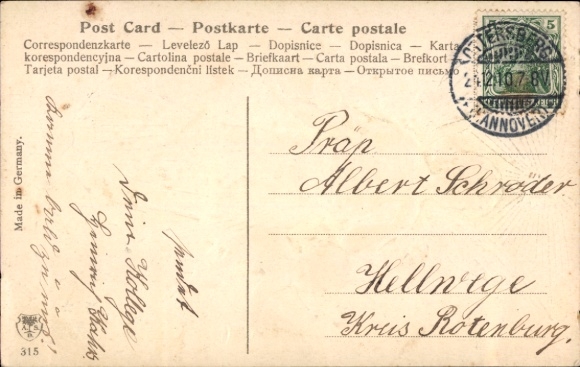 Post Card — Postkarte — Carte postale
Correspondenzkarte — Levelező Lap — Dopisnice — Dopisnica — Karta
korespondencyjna — Cartolina postale — Briefkaart — Carta postala — Brefkort
Tarjeta postal — Korespondenční listek — Дописна карта — Открытое письмо
5
OTTERSBERG
24.12.10.7-8V
(HANNOVER)
Präp
Albert Schröder
Hellwege
Kreis Rotenburg.
sendet
Dein Kollege
Made in Germany.
315